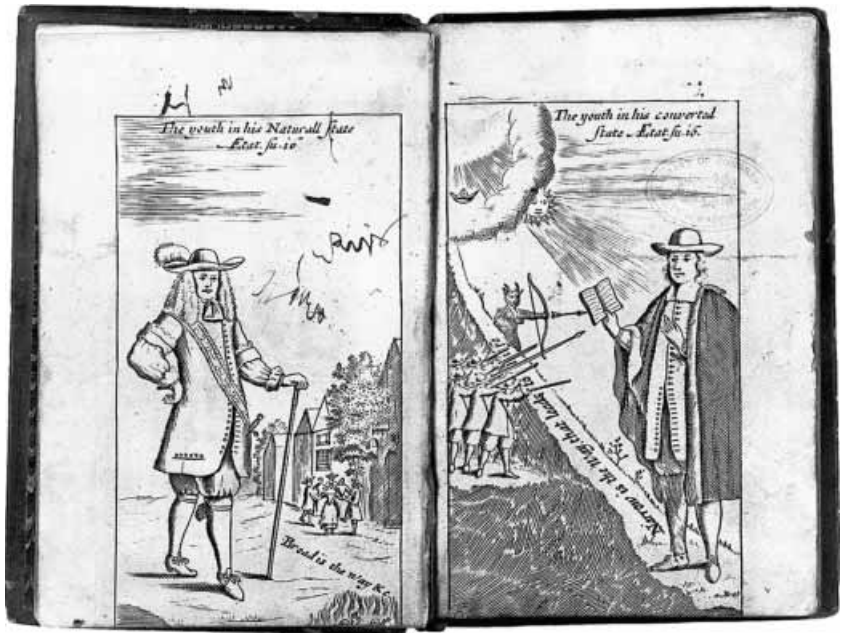 The youth in his Naturall state
Ætat. su. 16
Broad is the way &c.
The youth in his converted
state Ætat. su. 16.
Narrow is the Way that leads to